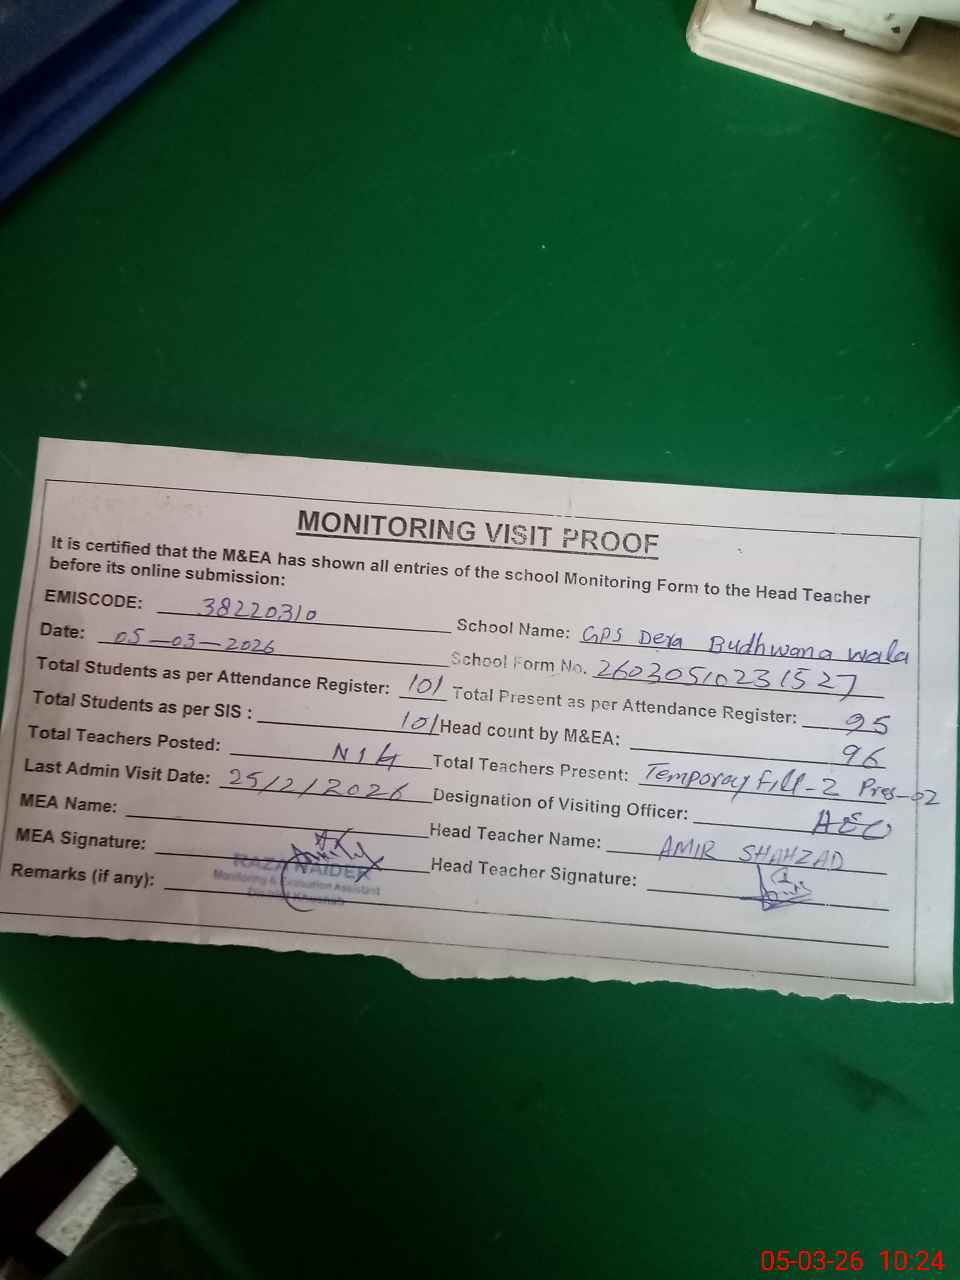 MONITORING VISIT PROOF
It is certified that the M&EA has shown all entries of the school Monitoring Form to the Head Teacher
before its online submission:
EMISCODE: 38220310 School Name: GPS Dera Budhwana wala
Date: 05-03-2026 School Form No. 26030510231527
Total Students as per Attendance Register: 101 Total Present as per Attendance Register: 95
Total Students as per SIS : 101 Head count by M&EA: 96
Total Teachers Posted: Nil Total Teachers Present: Temporay fill-2 Pres-02
Last Admin Visit Date: 25/2/2026 Designation of Visiting Officer: AEO
MEA Name: Head Teacher Name: AMIR SHAHZAD
MEA Signature: Head Teacher Signature:
RAZA HAIDER
Monitoring & Evaluation Assistant
District Khushab
Remarks (if any):
05-03-26 10:24